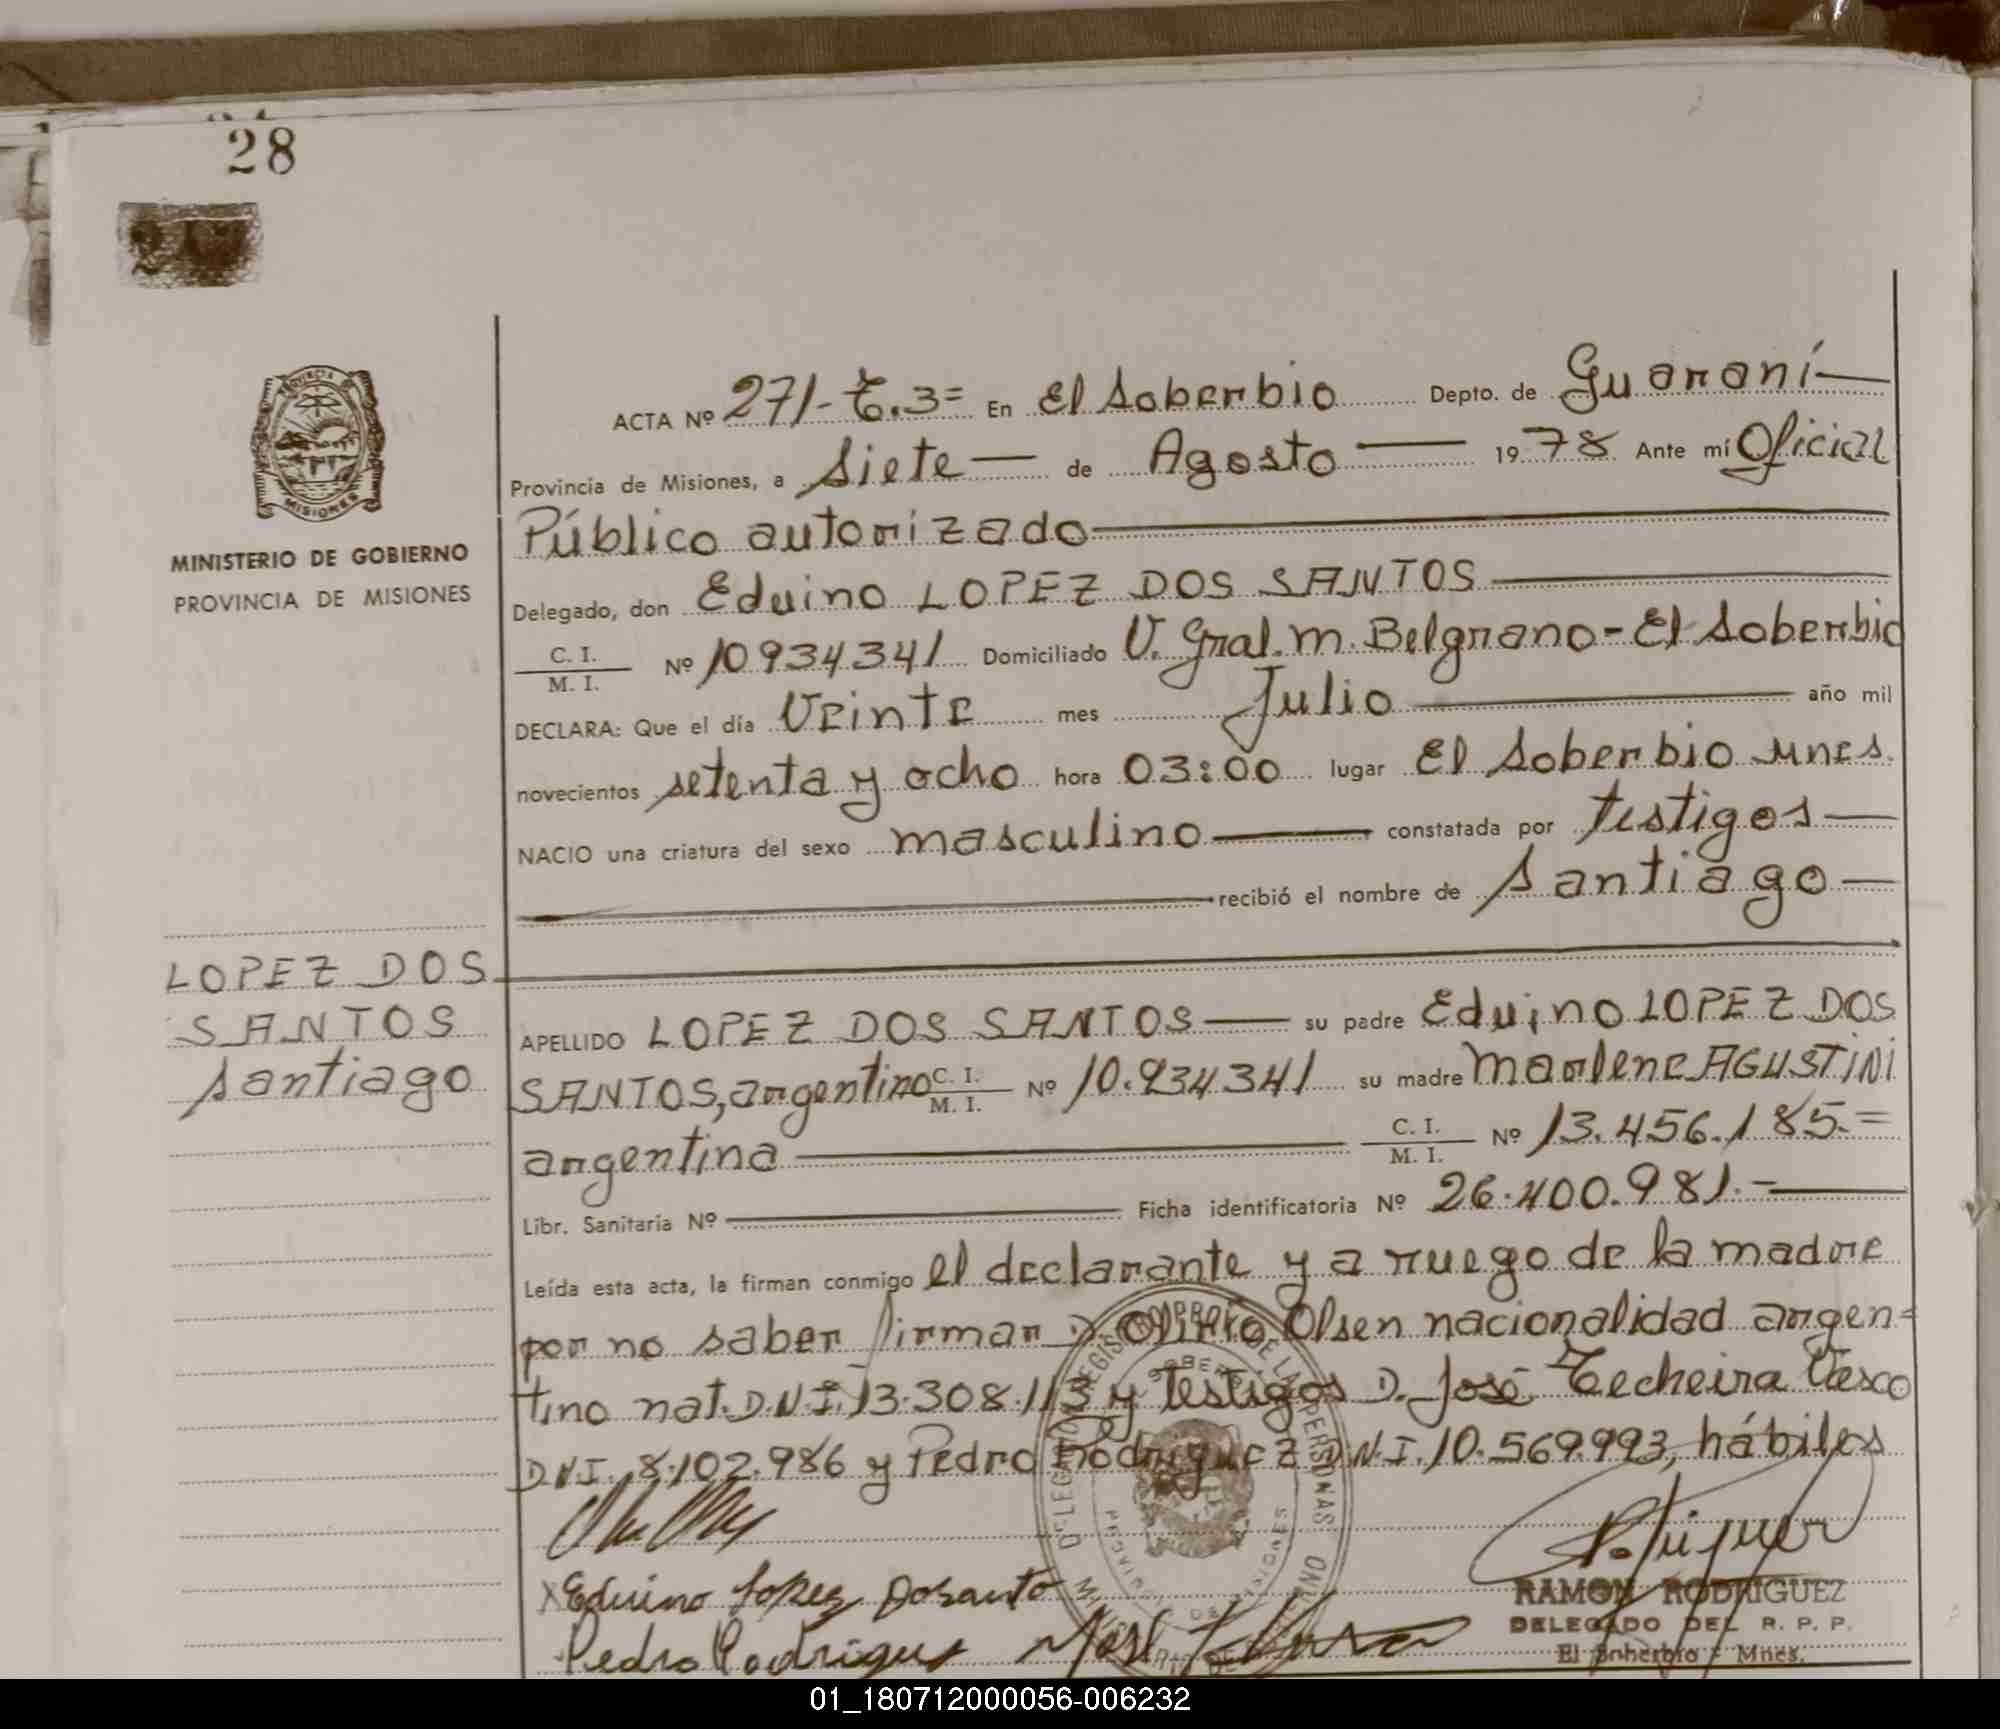 28
PROVINCIA
MISIONES
MINISTERIO DE GOBIERNO
PROVINCIA DE MISIONES
ACTA Nº 271-T.3= En El Soberbio Depto. de Guaraní
Provincia de Misiones, a Siete de Agosto 1978 Ante mí Oficial
Público autorizado
Delegado, don Eduino LOPEZ DOS SANTOS
C. I.
M. I. Nº 10934341 Domiciliado V. Gral. M. Belgrano-El Soberbio
DECLARA: Que el día Veinte mes Julio año mil
novecientos setenta y ocho hora 03:00 lugar El Soberbio Mnes.
NACIO una criatura del sexo masculino constatada por testigos
recibió el nombre de Santiago
LOPEZ DOS
SANTOS
Santiago
APELLIDO LOPEZ DOS SANTOS su padre Eduino LOPEZ DOS
SANTOS, argentino C. I. M. I. Nº 10.934341 su madre Marlene AGUSTINI
argentina C. I. M. I. Nº 13.456.185.=
Libr. Sanitaria Nº Ficha identificatoria Nº 26.400.981.-
Leída esta acta, la firman conmigo el declarante y a ruego de la madre
por no saber firmar D. Olinto Olsen nacionalidad argen=
tino nat. D.N.I. 13.308.113 y testigos D. José Techeira Vasco
D.N.I. 8.102.986 y Pedro Rodriguez D.N.I. 10.569.993, hábiles
X Eduino Lopez Dosanto
Pedro Rodrigue
RAMON RODRIGUEZ
DELEGADO DEL R. P. P.
El Soberbio - Mnes.
01_180712000056-006232